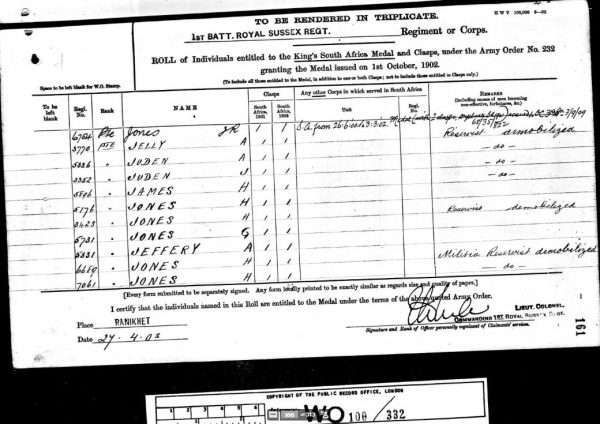 H W V 100,000 9—02
TO BE RENDERED IN TRIPLICATE.
1ST BATT. ROYAL SUSSEX REGT. Regiment or Corps.
ROLL of Individuals entitled to the King's South Africa Medal and Clasps, under the Army Order No. 232
granting the Medal issued on 1st October, 1902.
(To include all those entitled to the Medal, in addition to one or both Clasps; not to include those entitled to Clasps only.)
Space to be left blank for W.O. Stamp.
To be left blank Regl. No. Rank NAME Clasps South Africa, 1901 South Africa, 1902 Any other Corps in which served in South Africa Unit Regl. No. REMARKS (including causes of men becoming non-effective, forfeitures, &c.)
6784 Pte Jones JR 1 1 S.A. from 26.6.00 to 3.3.02.
3770 Pte JELLY A 1 1 Reservist demobilized
5336 " JUDEN A 1 1 — do —
3352 " JUDEN J 1 1 — do —
5596 " JAMES H 1 1
5176 " JONES H 1 1 Reservist demobilized
3423 " JONES H 1 1
5731 " JONES G 1 1
5331 " JEFFERY A 1 1 Militia Reservist demobilized
6659 " JONES H 1 1 — do —
7061 " JONES H 1 1
[Every form submitted to be separately signed. Any form locally printed to be exactly similar as regards size and quality of paper.]
I certify that the individuals named in this Roll are entitled to the Medal under the terms of the above quoted Army Order.
Place RANIKHET
Date 27-4-03
LIEUT. COLONEL,
COMMANDING 1ST ROYAL SUSSEX REGT.
Signature and Rank of Officer personally cognizant of Claimants' services.
161
COPYRIGHT OF THE PUBLIC RECORD OFFICE, LONDON
1 2 3 4 5 6
WO 100 / 332